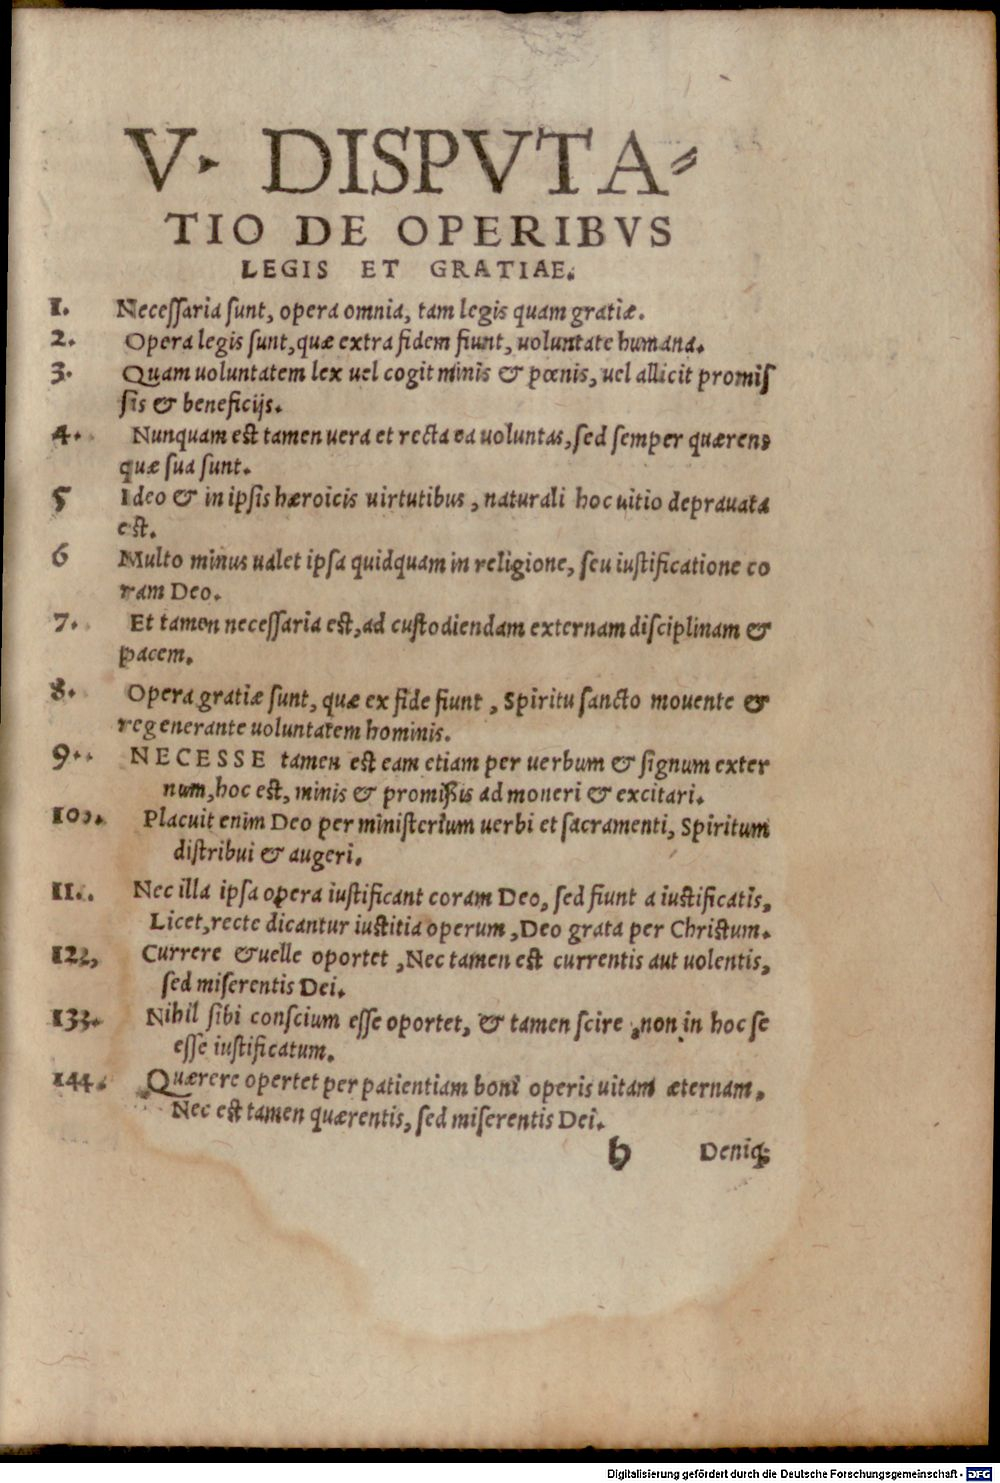 V. DISPVTA⸗
TIO DE OPERIBVS
LEGIS ET GRATIAE.
1. Neceſſaria ſunt, opera omnia, tam legis quam gratiæ.
2. Opera legis ſunt, quæ extra fidem fiunt, uoluntate humana.
3. Quam uoluntatem lex uel cogit minis & pœnis, uel allicit promiſ
ſis & beneficijs.
4. Nunquam est tamen uera et recta ea uoluntas, ſed ſemper quærens
quæ ſua ſunt.
5 Ideo & in ipſis hæroicis uirtutibus, naturali hoc uitio deprauata
est.
6 Multo minus ualet ipſa quidquam in religione, ſeu iuſtificatione co
ram Deo.
7. Et tamen neceſſaria est, ad cuſtodiendam externam diſciplinam &
pacem.
8. Opera gratiæ ſunt, quæ ex fide fiunt, Spiritu ſancto mouente &
regenerante uoluntatem hominis.
9. NECESSE tamen est eam etiam per uerbum & ſignum exter
num, hoc est, minis & promiſsis ad moneri & excitari.
10. Placuit enim Deo per miniſterium uerbi et ſacramenti, Spiritum
diſtribui & augeri.
11. Nec illa ipſa opera iuſtificant coram Deo, ſed fiunt a iuſtificatis,
Licet, recte dicantur iuſtitia operum, Deo grata per Chriſtum.
122, Currere & uelle oportet, Nec tamen est currentis aut uolentis,
ſed miſerentis Dei.
133. Nihil ſibi conſcium eſſe oportet, & tamen ſcire, non in hoc ſe
eſſe iuſtificatum.
144. Quærere opertet per patientiam boni operis uitam æternam,
Nec est tamen quærentis, ſed miſerentis Dei.
b Deniq;
Digitalisierung gefördert durch die Deutsche Forschungsgemeinschaft - DFG